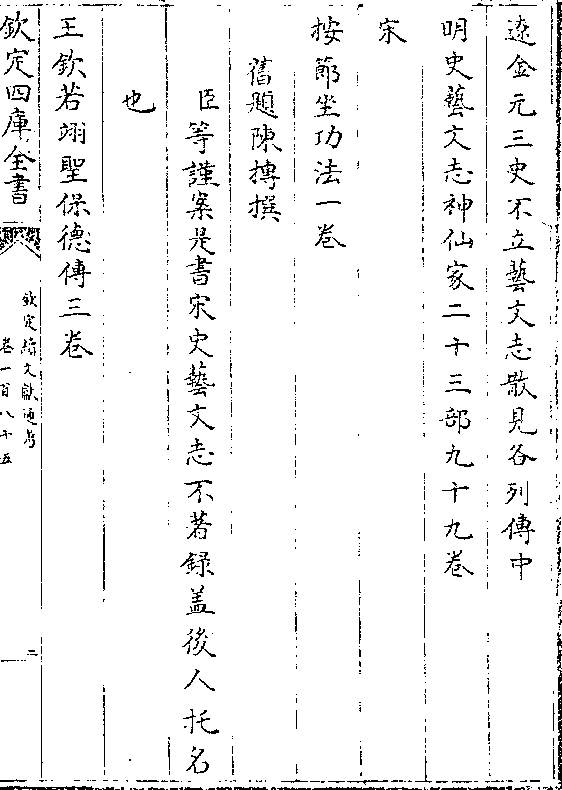 遼金元三史不立藝文志散見各列傳中
明史藝文志神仙家二十三部九十九卷
宋
按節坐功法一卷
舊題陳摶撰
臣等謹案是書宋史藝文志不著錄盖後人托名
也
王欽若翊聖保德傳三卷
欽定四庫全書
欽定續文獻通考
卷一百八十五
二